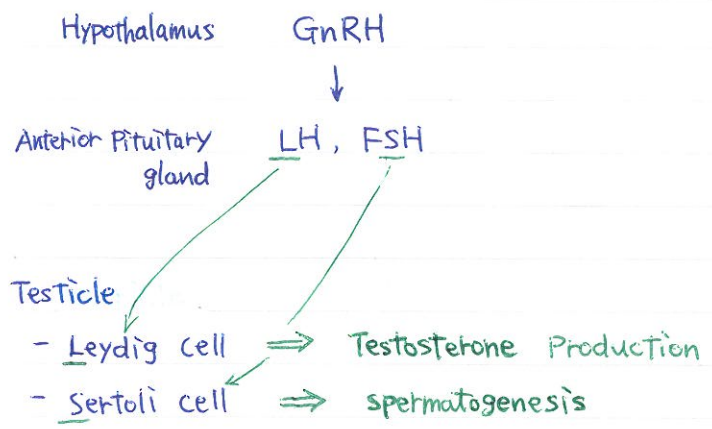 Hypothalamus GnRH
↓
Anterior Pituitary LH, FSH
gland
Testicle
- Leydig cell ⇒ Testosterone Production
- Sertoli cell ⇒ spermatogenesis